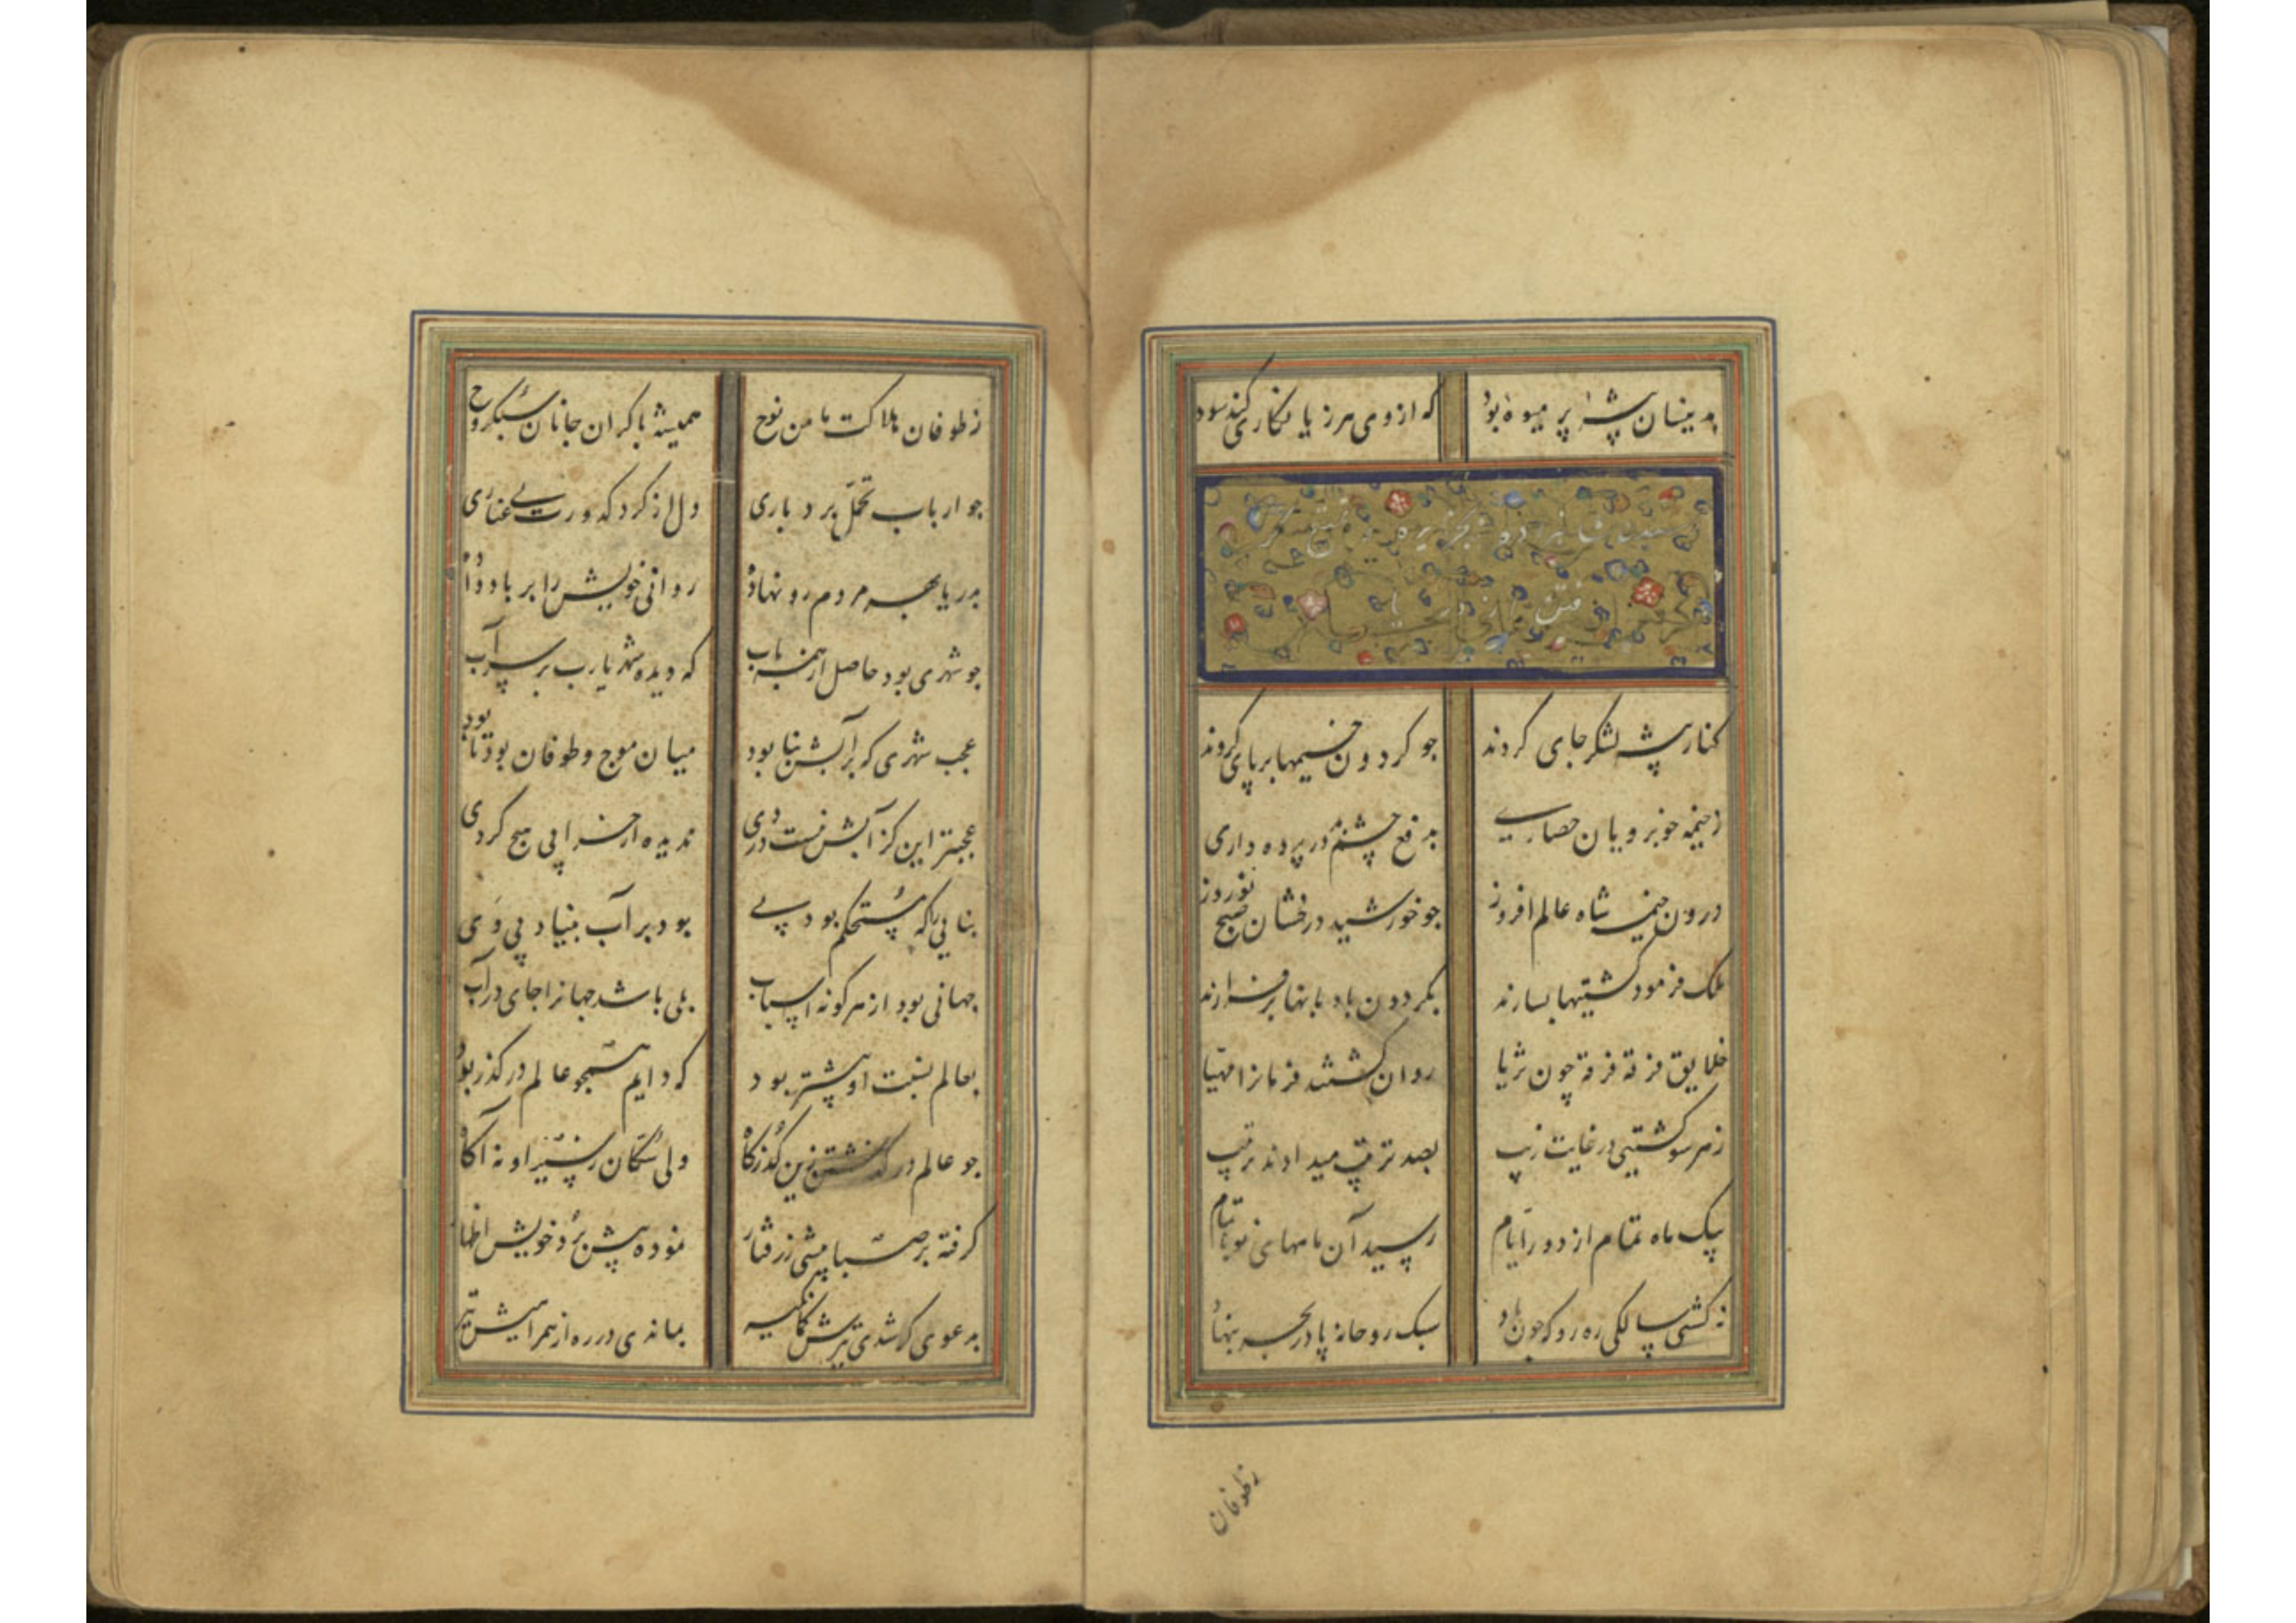 بدینسان بیشهٔ پر میوه بود که از وی مرز یانکاری کند سود
رسیدن شاهزاده بجزیره
کنار بیشه لشکر جای کردند جو کردون خیمها بر پای کردند
ز خیمه خوبرویان حصاریی بدفع چشم در پرده داری
درون خیمه شاه عالم افروز جو خورشید درخشان صبح نوروز
ملک فرمود کشتیها بسازند بکردون بادبانها برفرازند
خلایق فرقه فرقه چون ثریا روان کشتند فرمانرا مهیا
زهر سو کشتیی در غایت زیب بصد ترتیب میدادند ترتیب
بیک ماه تمام از دور ایام رسید آن ماههای نو باتمام
نه کشتی سالکی ره رو که جون باد سبک روحانه پا در بحر بنهاد
زطوفان
زطوفان هلاکت مامن نوح همیشه با کران جانان سبکروح
جو ارباب تحمل بردباری دل از کرد کدورت بی غباری
بدریا بهر مردم رو نهاده روانی خویش را بر باد داده
جو شهری بود حاصل از همه باب که دیده شهر یارب بر سر آب
عجب شهری که بر آبش بنا بود میان موج و طوفان بود تا بود
عجبتر این کز آبش نیست دردی ندیده از خرابی هیچ کردی
بنایی را که مستحکم بود پی بود بر آب بنیاد پی وی
جهانی بود از هر کونه اسباب بلی باشد جهانرا جای در آب
بعالم نسبت او بیشتر بود که دایم همجو عالم در کذر بود
جو عالم در کذشتن زین کذرکاه ولی سکان ز سیر او نه آکاه
کرفته بر صبا پیشی ز رفتار نموده پیش برد خویش اظهار
بدعوی که شدی تیرش کمانکیر بماندی در ره از همراهیش تیر